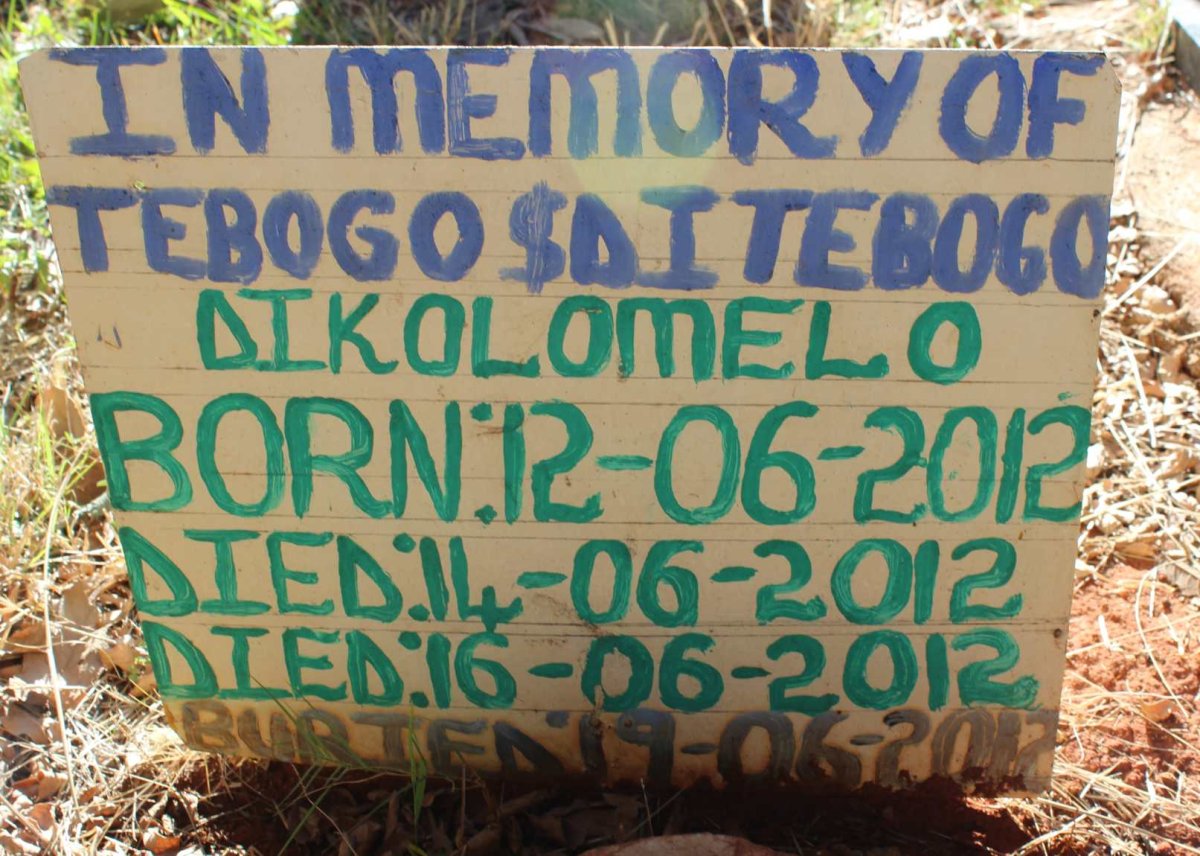 IN MEMORY OF
TEBOGO $ DITEBOGO
DIKOLOMELO
BORN:12-06-2012
DIED:14-06-2012
DIED:16-06-2012
BURIED:19-06-2012